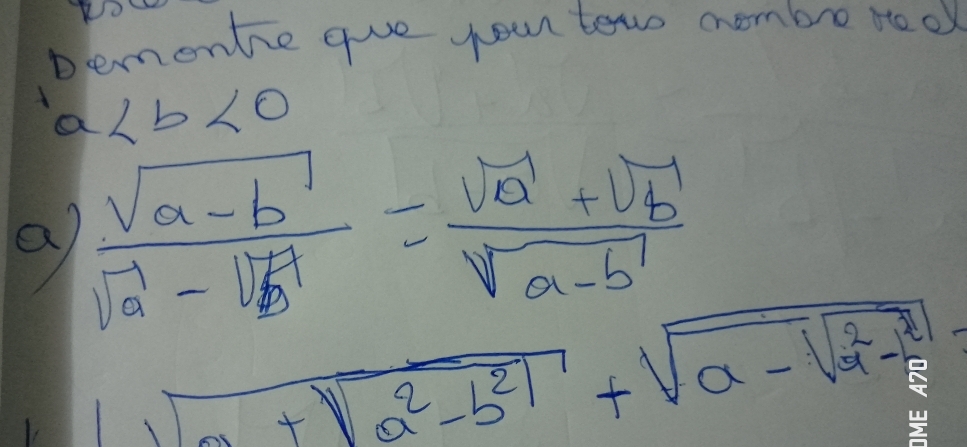 Demontre que pour tous nombre reel
a < b < 0
a) √(a - b) / (√a - √b) = (√a + √b) / √(a - b)
√(a + √(a² - b²)) + √(a - √(a² - b²)) =
OME A70